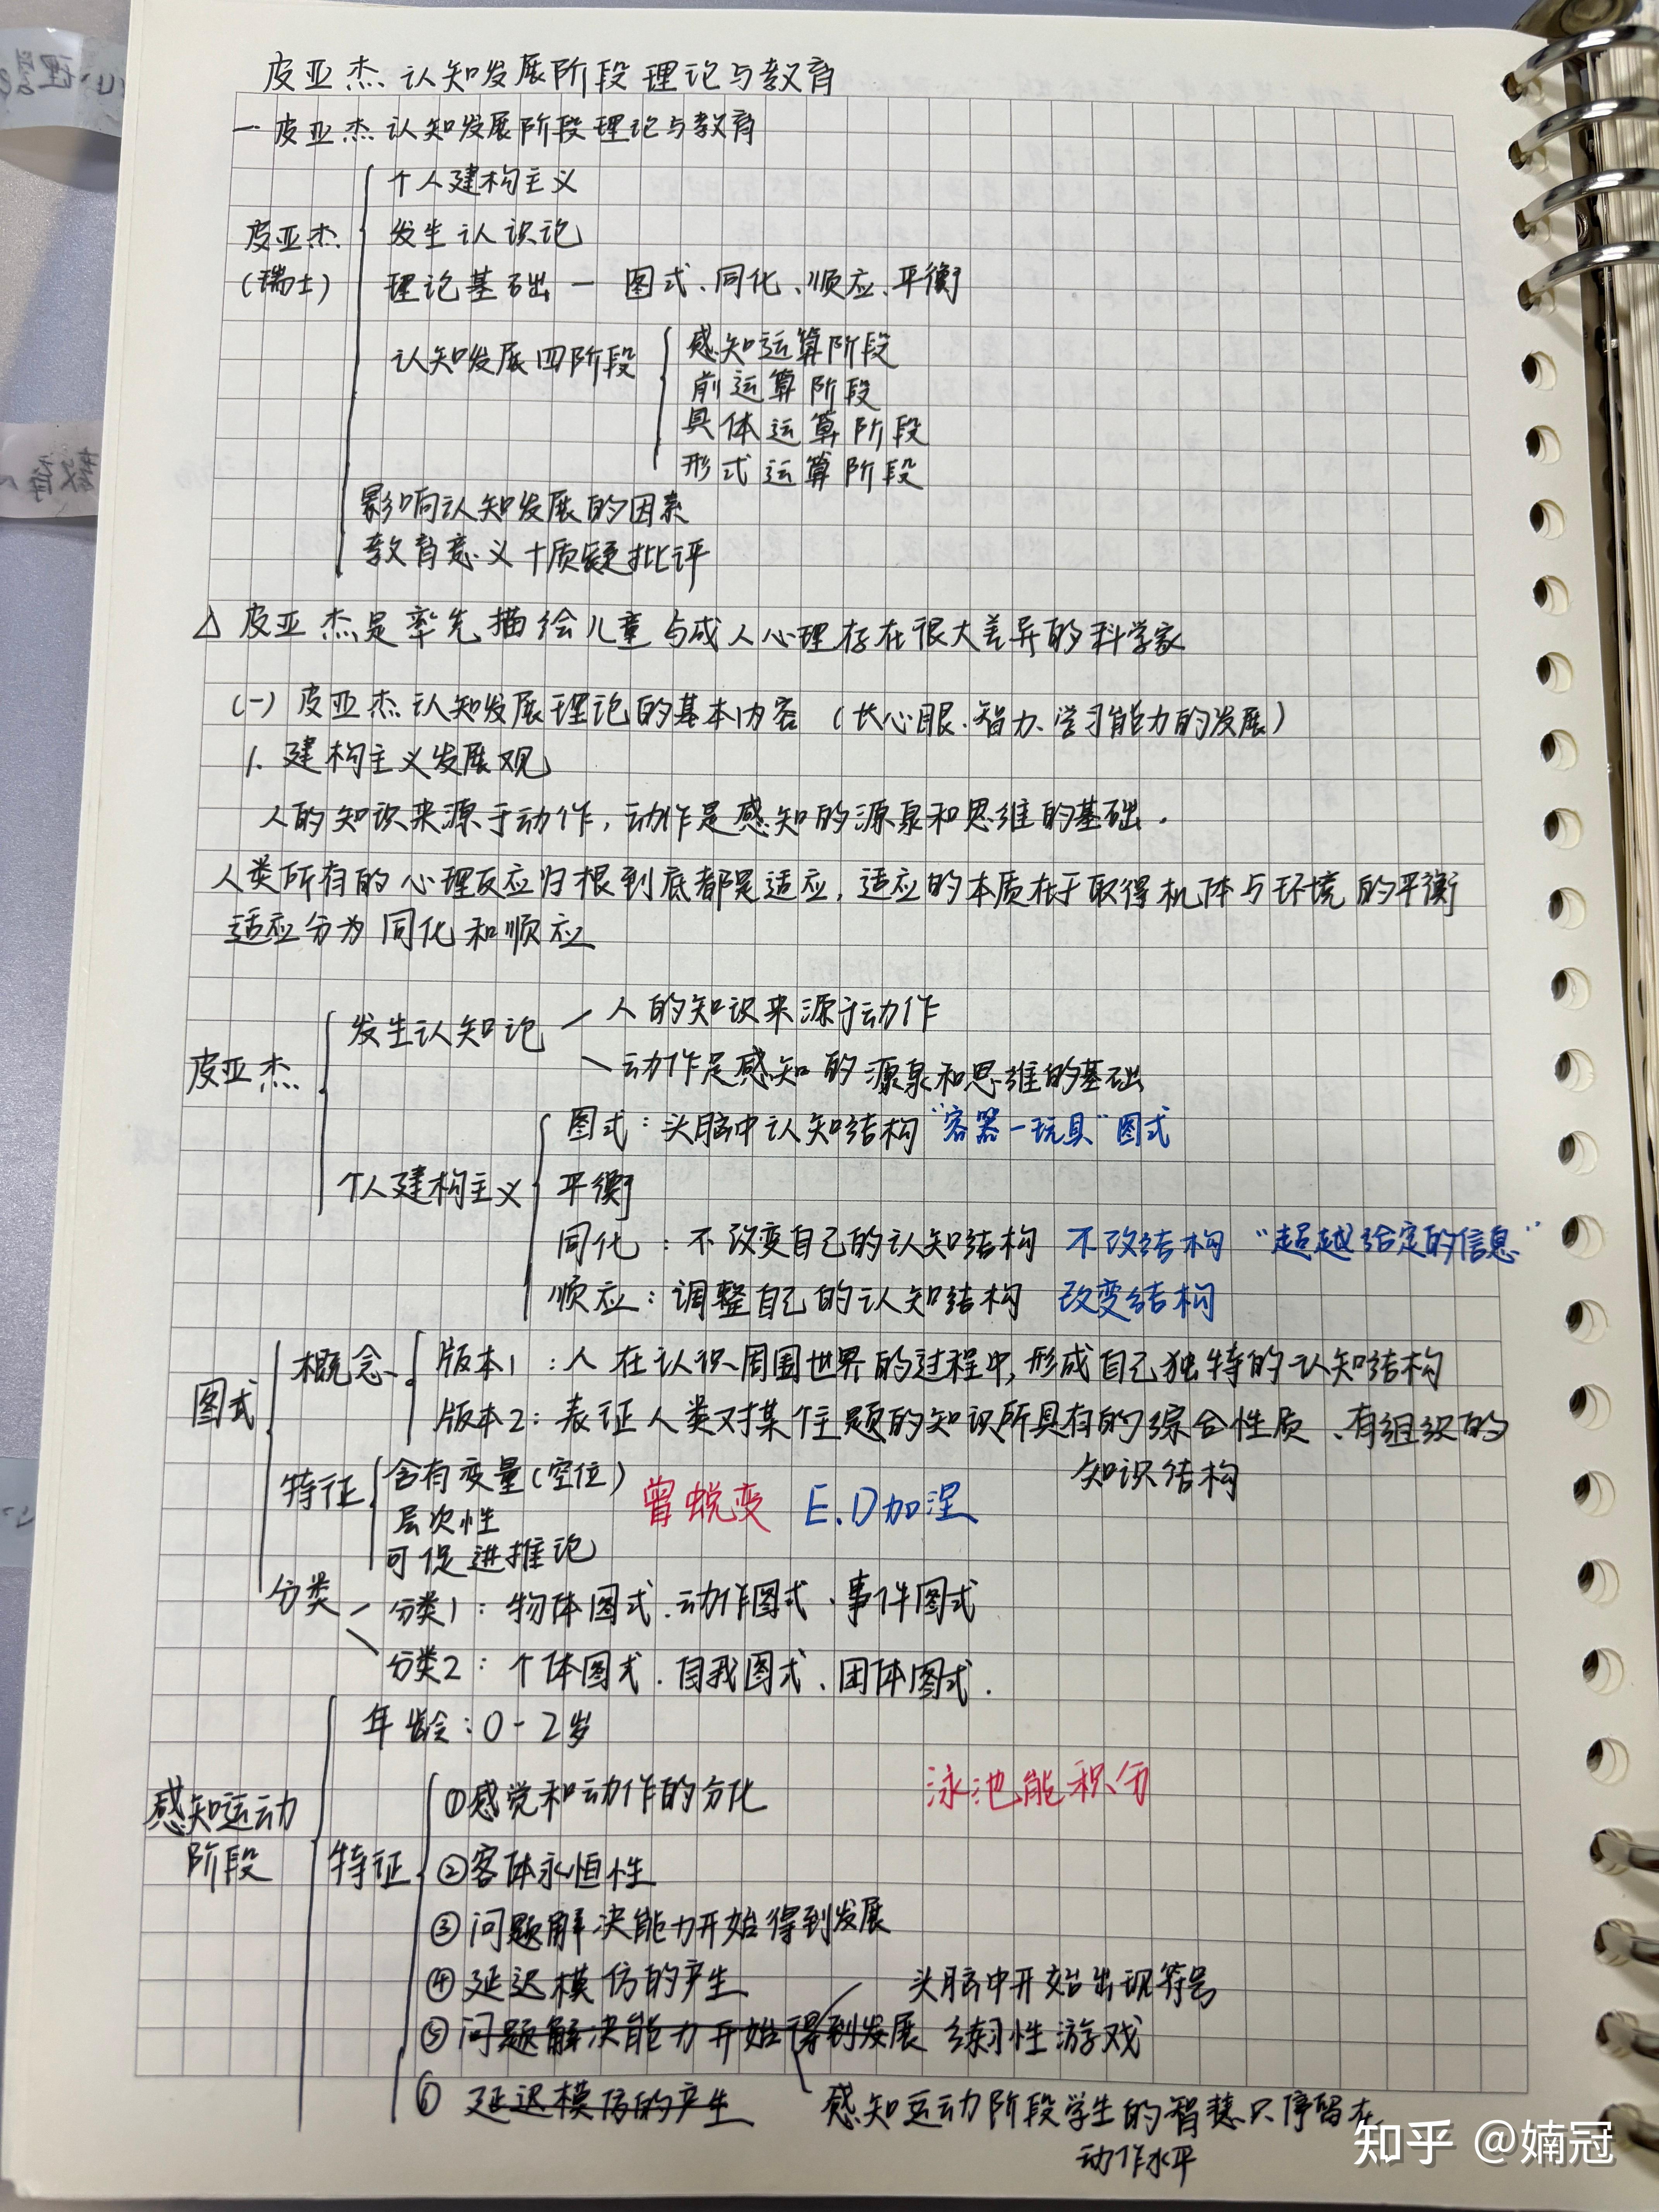 皮亚杰认知发展阶段理论与教育
一 皮亚杰认知发展阶段理论与教育
个人建构主义
皮亚杰 发生认识论
(瑞士) 理论基础 — 图式、同化、顺应、平衡
认知发展四阶段 感知运算阶段
前运算阶段
具体运算阶段
形式运算阶段
影响认知发展的因素
教育意义+质疑批评
△ 皮亚杰是率先描绘儿童与成人心理存在很大差异的科学家
(一) 皮亚杰认知发展理论的基本内容 (长心眼、智力、学习能力的发展)
1. 建构主义发展观
人的知识来源于动作,动作是感知的源泉和思维的基础.
人类所有的心理反应归根到底都是适应,适应的本质在于取得机体与环境的平衡
适应分为同化和顺应
皮亚杰 发生认知论 人的知识来源于动作
动作是感知的源泉和思维的基础
个人建构主义 图式: 头脑中认知结构 “容器—玩具”图式
平衡
同化: 不改变自己的认知结构 不改结构 “超越给定的信息”
顺应: 调整自己的认知结构 改变结构
图式 概念 版本1: 人在认识周围世界的过程中,形成自己独特的认知结构
版本2: 表证人类对某个主题的知识所具有的综合性质、有组织的
知识结构
特征 含有变量(空位) 曾蜕变 E.D加涅
层次性
可促进推论
分类 分类1: 物体图式、动作图式、事件图式
分类2: 个体图式、自我图式、团体图式.
年龄: 0-2岁
感知运动阶段 特征 ①感觉和动作的分化 泳池能积分
②客体永恒性
③问题解决能力开始得到发展
④延迟模仿的产生 头脑中开始出现符号
⑤问题解决能力开始得到发展 练习性游戏
⑥延迟模仿的产生 感知运动阶段学生的智慧只停留在
动作水平
知乎 @婻冠